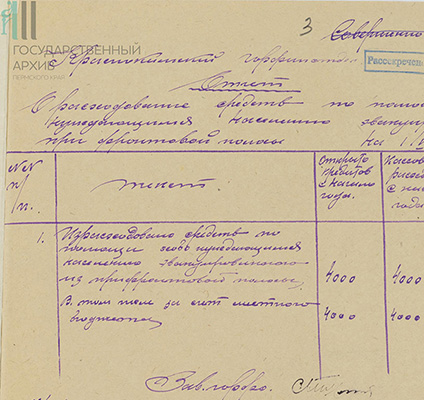 ГОСУДАРСТВЕННЫЙ
АРХИВ
ПЕРМСКОГО КРАЯ
3 Совершенно
Рассекречено
Краснокамский горфинотдел
Отчет
О расходовании средств по помощи
нуждающимся населению эвакуир
при фронтовой полосы на 1/
№№
п/
п.
текст.
Открыто
кредитов
с начала
года.
Кассов
расход
с нач
года
1. Израсходовано средств по
помощи особо нуждающимся
населению эвакуированного
из прифронтовой полосы.
4000 4000
В том числе за счет местного
бюджета
4000 4000
Зав. горфо.